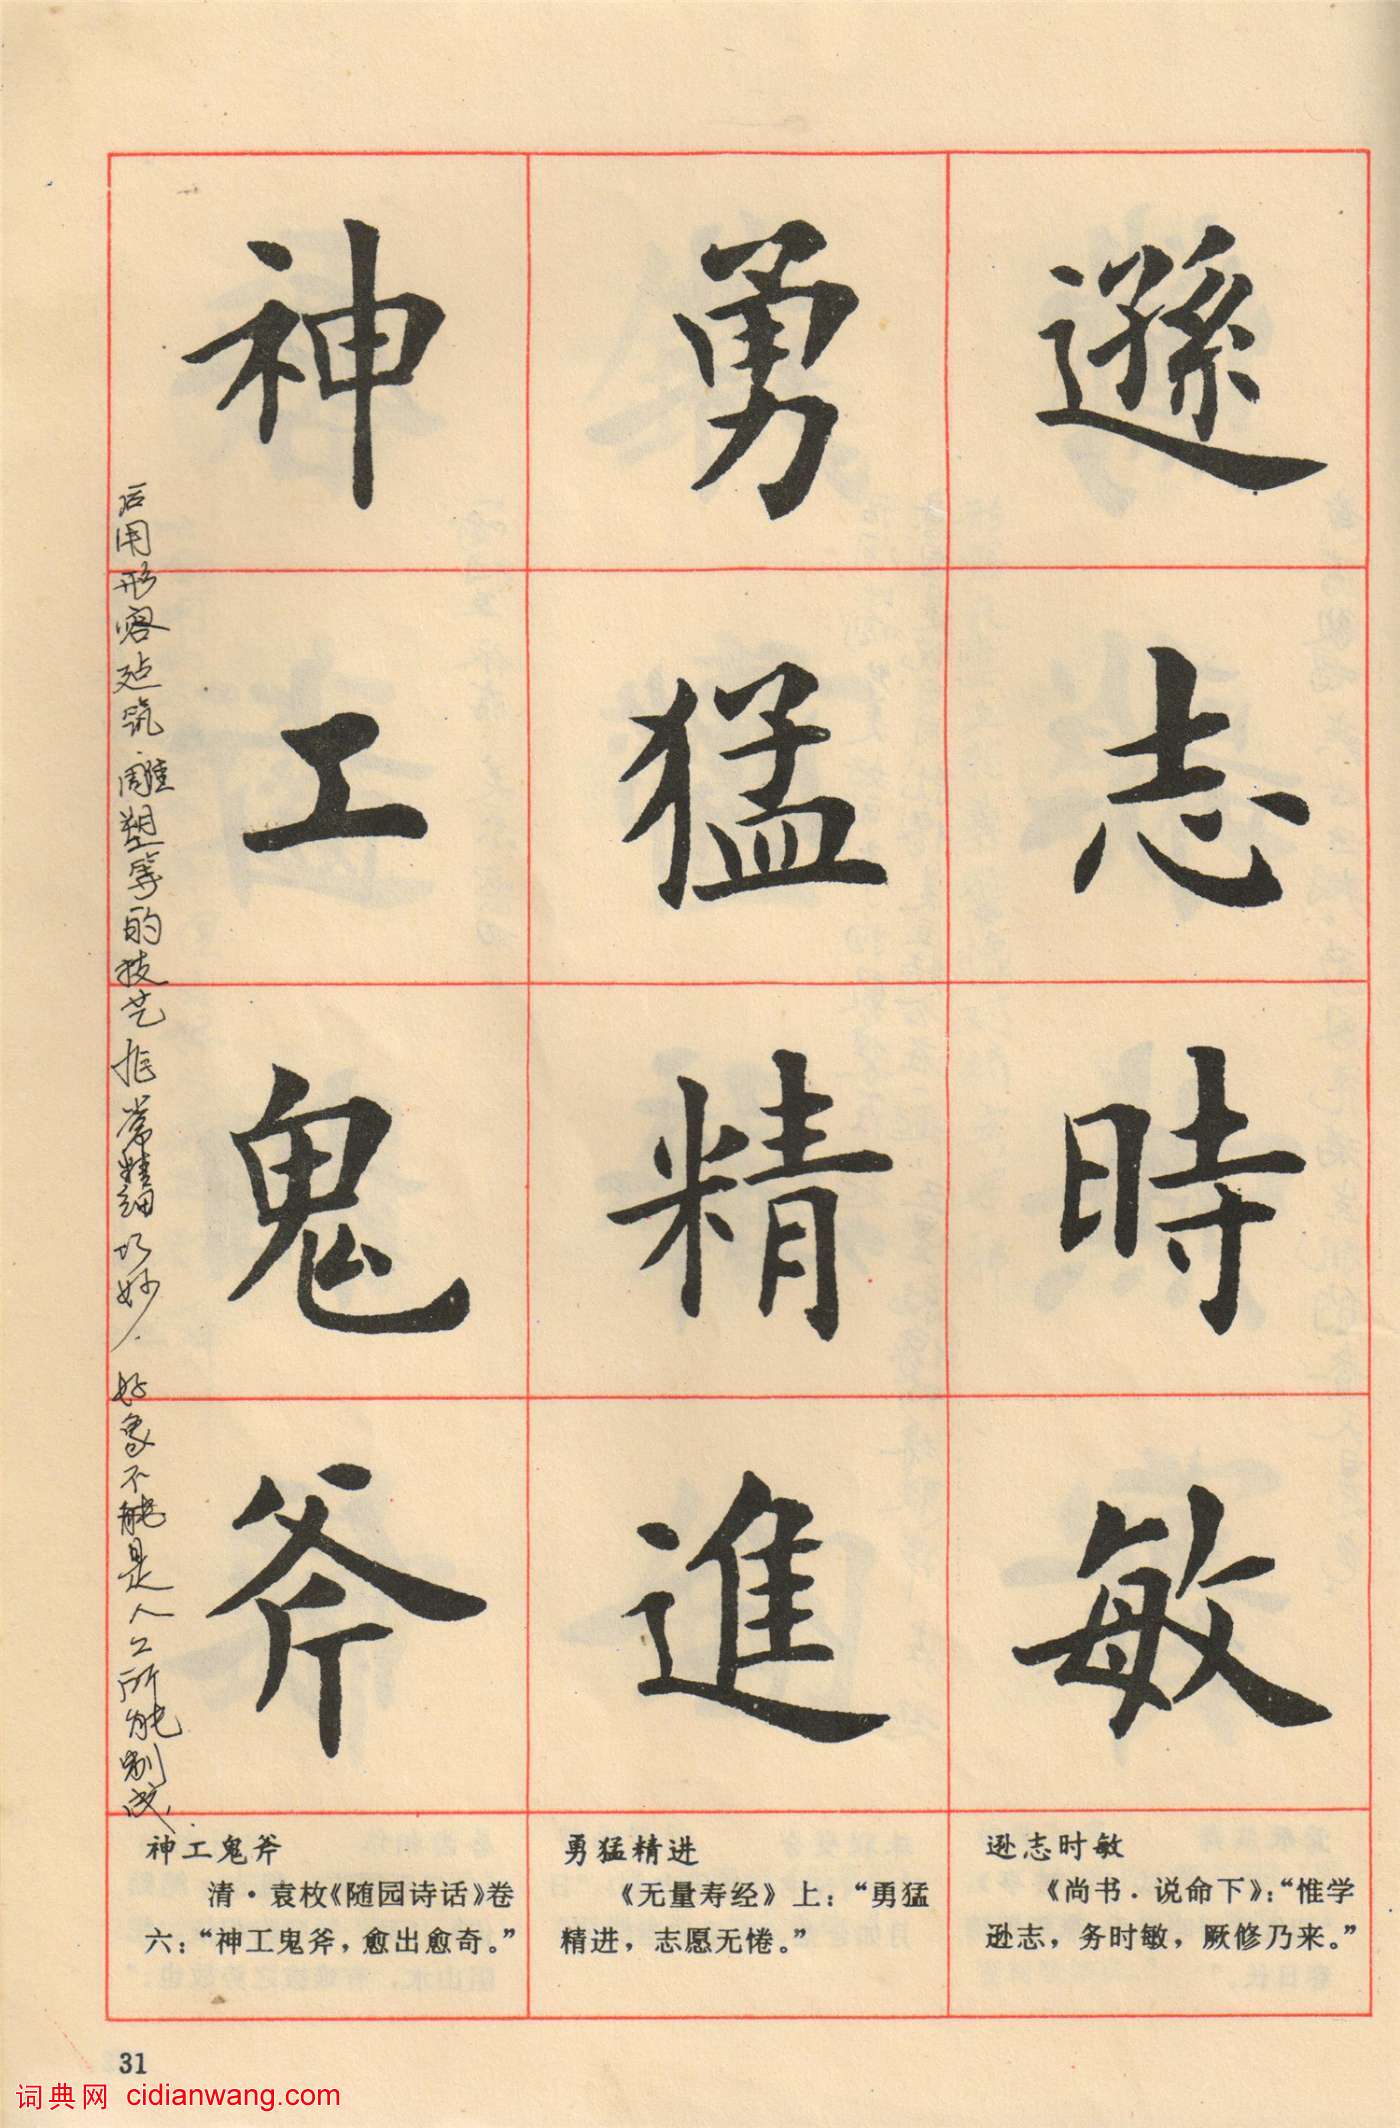 遜志時敏
勇猛精進
神工鬼斧
后用形容建筑雕塑等的技艺非常精细巧妙.好象不能是人工所能制成.
逊志时敏
《尚书·说命下》:“惟学
逊志,务时敏,厥修乃来。”
勇猛精进
《无量寿经》上:“勇猛
精进,志愿无倦。”
神工鬼斧
清·袁枚《随园诗话》卷
六:“神工鬼斧,愈出愈奇。”
31
词典网 cidianwang.com